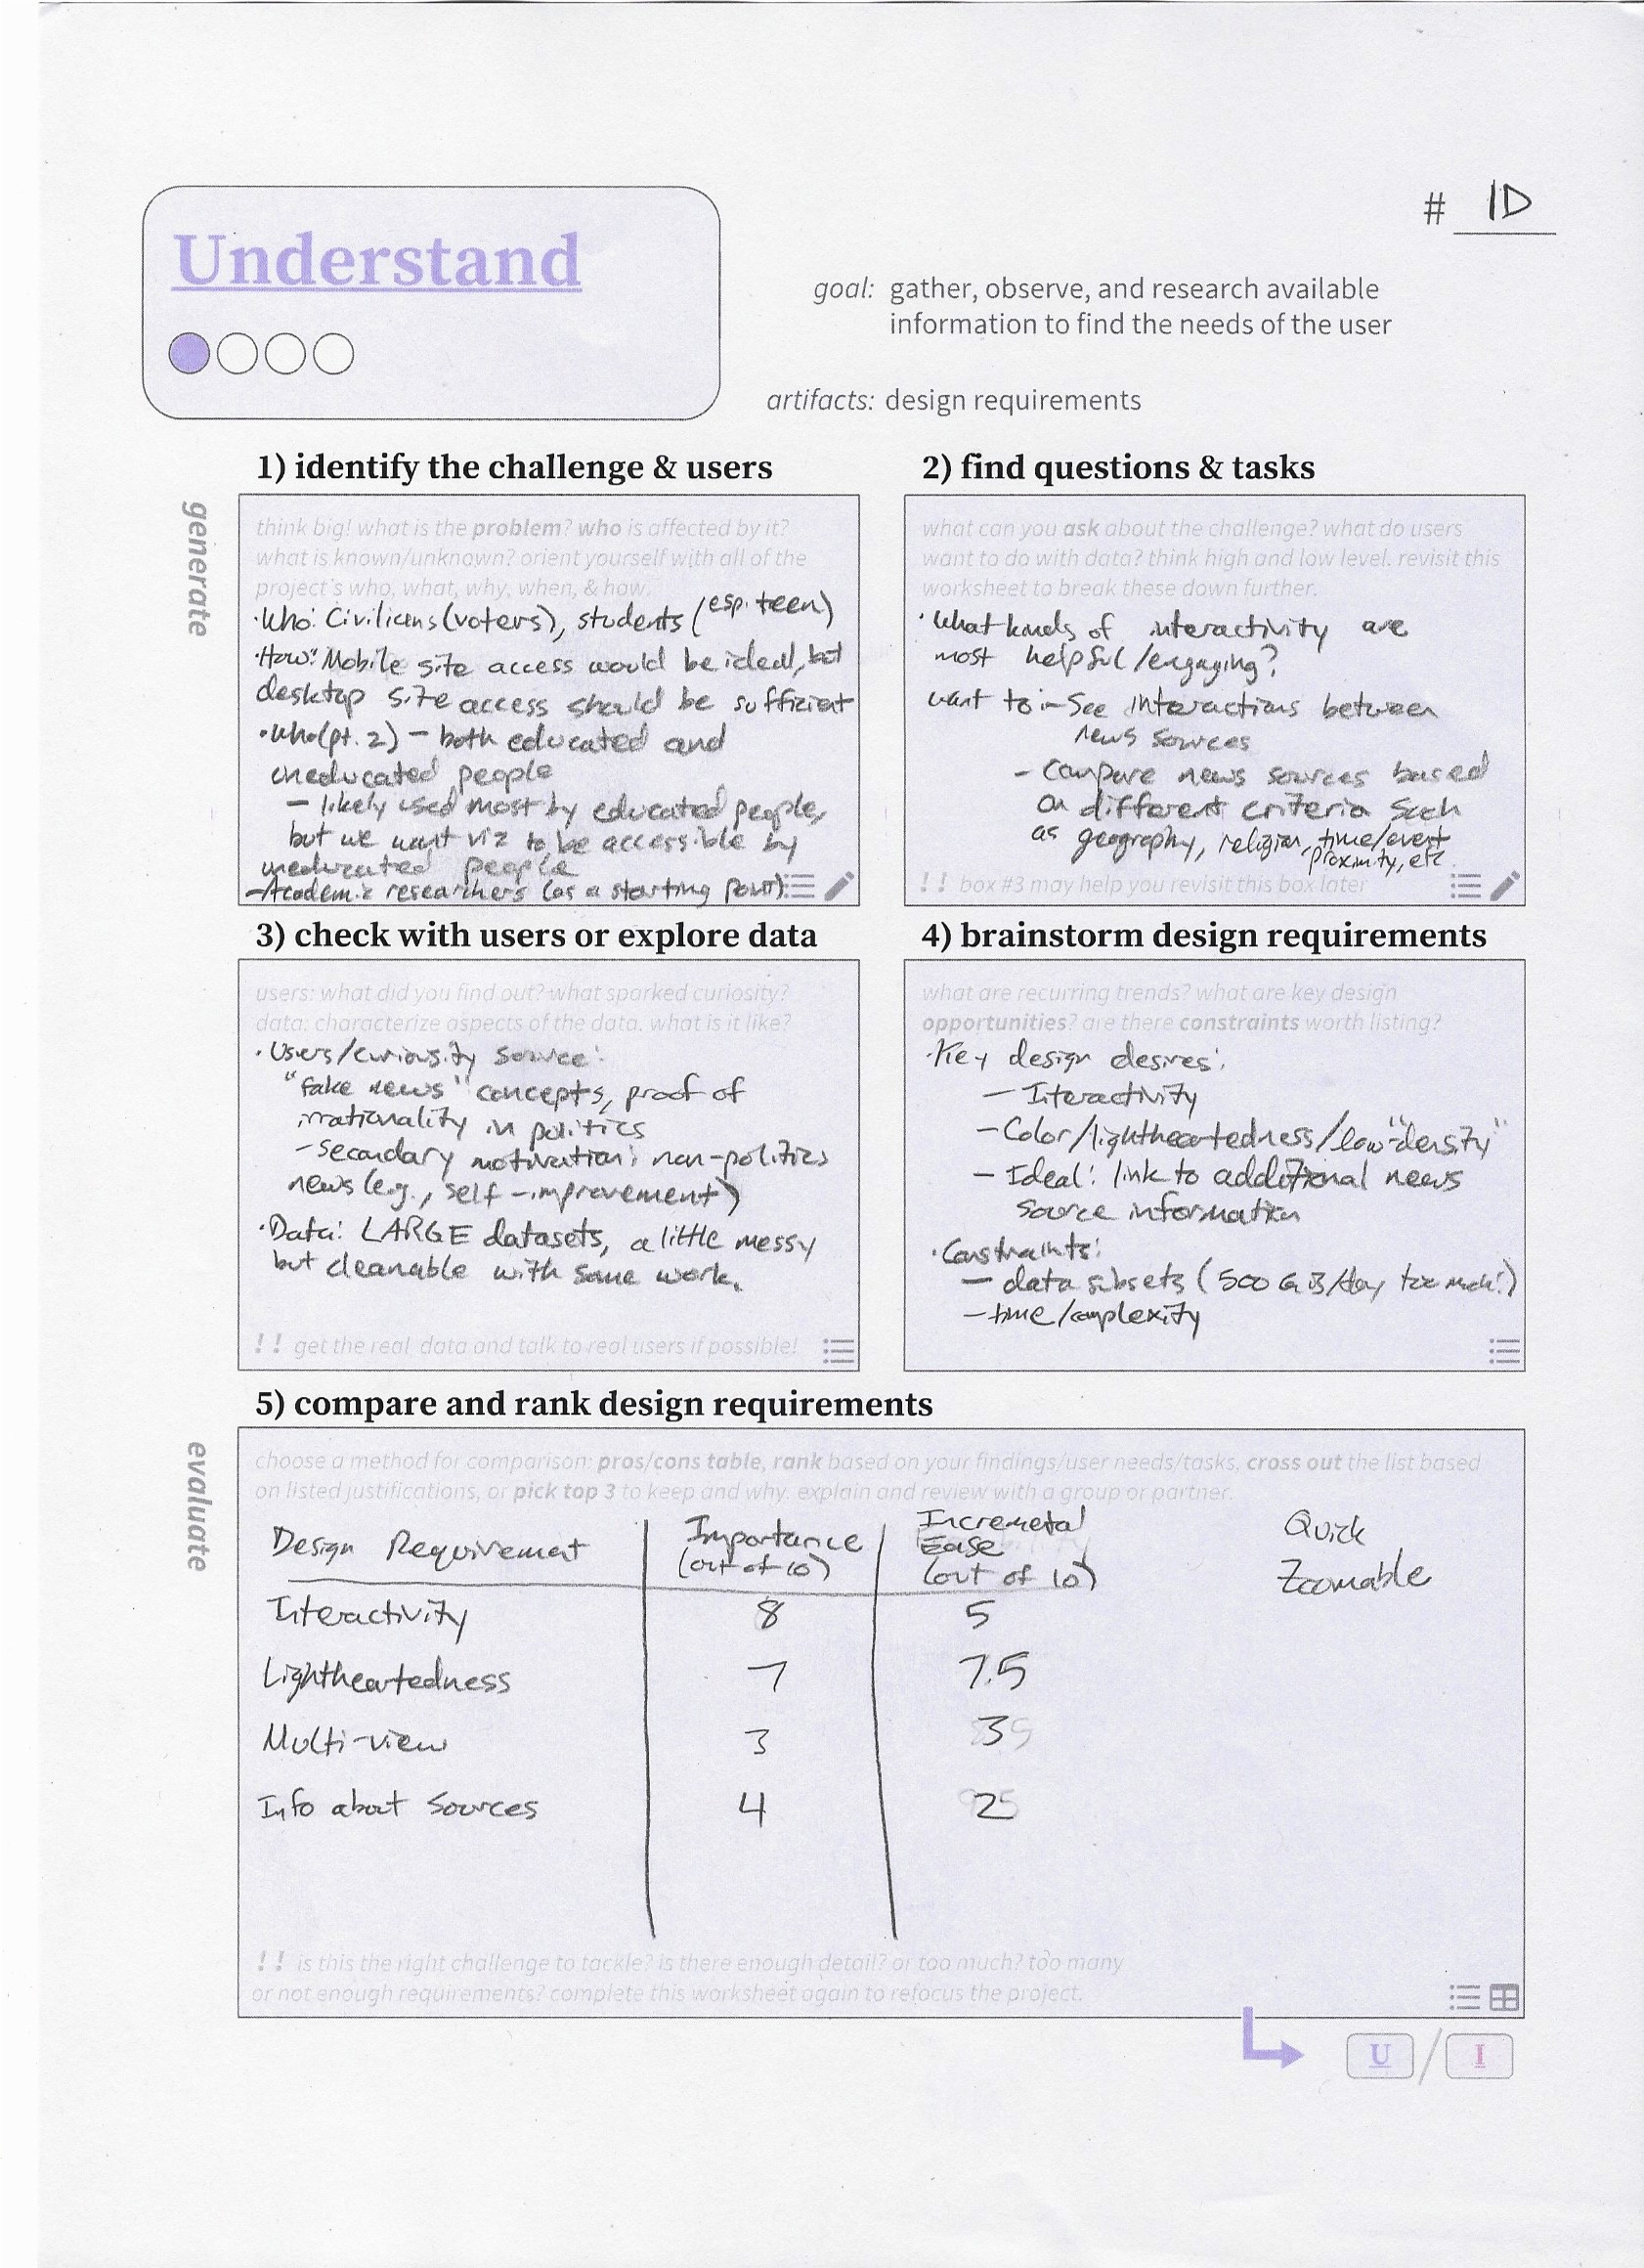 Understand
# 1D
goal: gather, observe, and research available
information to find the needs of the user
artifacts: design requirements
generate
1) identify the challenge & users
think big! what is the problem? who is affected by it?
what is known/unknown? orient yourself with all of the
project's who, what, why, when, & how.
·Who: Civilians (voters), students (esp. teen)
·How: Mobile site access would be ideal, but
desktop site access should be sufficient
·Who (pt. 2) – both educated and
uneducated people
– likely used most by educated people,
but we want viz to be accessible by
uneducated people
–Academic researchers (as a starting point)
2) find questions & tasks
what can you ask about the challenge? what do users
want to do with data? think high and low level. revisit this
worksheet to break these down further.
·What kinds of interactivity are
most helpful/engaging?
want to: – See interactions between
news sources
– Compare news sources based
on different criteria such
as geography, religion, time/event
proximity, etc.
!! box #3 may help you revisit this box later
3) check with users or explore data
users: what did you find out? what sparked curiosity?
data: characterize aspects of the data. what is it like?
·Users/curiosity source:
"fake news" concepts, proof of
irrationality in politics
–secondary motivation: non-politics
news (e.g., self-improvement)
·Data: LARGE datasets, a little messy
but cleanable with some work.
!! get the real data and talk to real users if possible!
4) brainstorm design requirements
what are recurring trends? what are key design
opportunities? are there constraints worth listing?
·Key design desires:
– Interactivity
–Color/lightheartedness/low "density"
– Ideal: link to additional news
source information
·Constraints:
– data subsets (500 GB/day too much!)
–time/complexity
evaluate
5) compare and rank design requirements
choose a method for comparison: pros/cons table, rank based on your findings/user needs/tasks, cross out the list based
on listed justifications, or pick top 3 to keep and why. explain and review with a group or partner.
Design Requirement Importance (out of 10) Incremetal Ease (out of 10)
Quick
Zoomable
Interactivity 8 5
Lightheartedness 7 7.5
Multi-view 3 3
Info about Sources 4 2
!! is this the right challenge to tackle? is there enough detail? or too much? too many
or not enough requirements? complete this worksheet again to refocus the project.
U / I